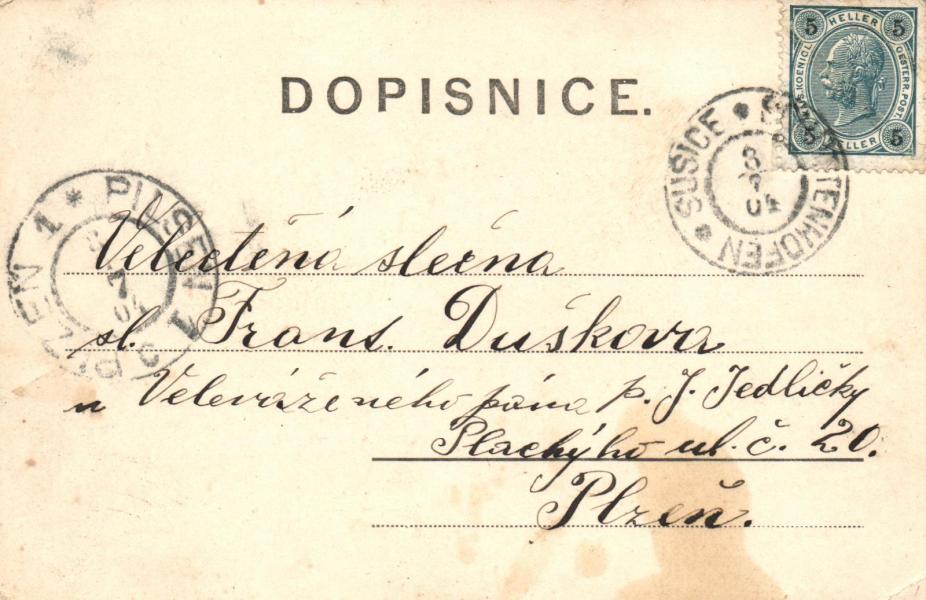 DOPISNICE.
5 HELLER 5
K.K. OESTERR. POST.
5 HELLER 5
* SUŠICE * SCHÜTTENHOFEN
8
7
04
PILSEN 1 * PLZEŇ 1
8
7
04
Velectěná slečna
sl. Frant. Duškova
u Veleváženého pána p. J. Jedličky
Plachýho ul. č. 20.
Plzeň.